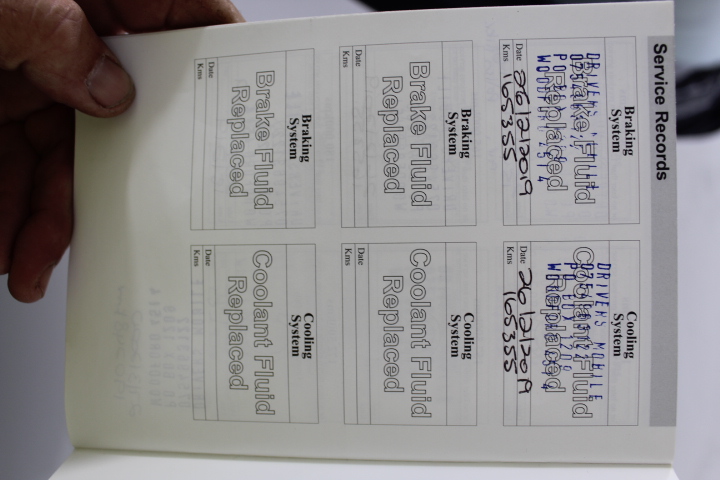 Service Records
Braking
System
Brake Fluid
Replaced
DRIVERS
Date 26/2/2019
Kms 165355
Cooling
System
Coolant Fluid
Replaced
DRIVERS MOBILE
Date 26/2/2019
Kms 165355
Braking
System
Brake Fluid
Replaced
Date
Kms
Cooling
System
Coolant Fluid
Replaced
Date
Kms
Braking
System
Brake Fluid
Replaced
Date
Kms
Cooling
System
Coolant Fluid
Replaced
Date
Kms